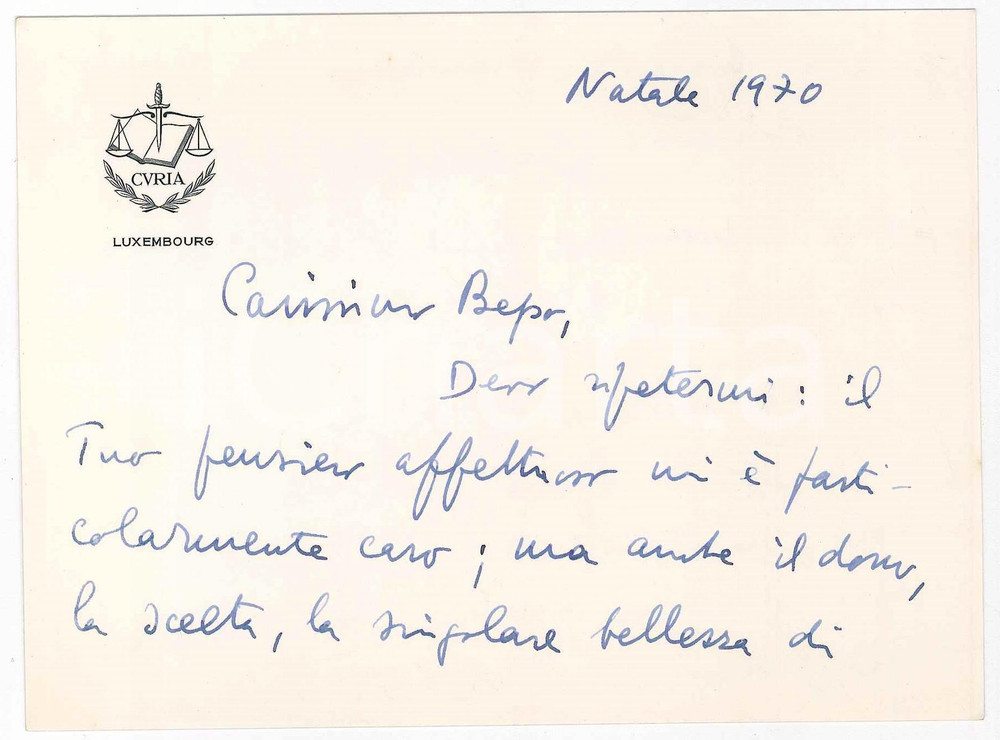 Natale 1970
CVRIA
LUXEMBOURG
Carissimo Bepo,
Devo ripetermi : il
Tuo pensiero affettuoso mi è parti-
colarmente caro ; ma anche il dono,
la scelta, la singolare bellezza di